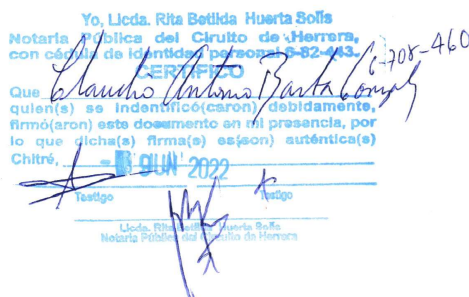 Yo, Licda. Rita Betilda Huerta Solís
Notaria Pública del Circuito de Herrera,
con cédula de identidad personal 6-82-443.
CERTIFICO
6-708-460
Que Claudio Antonio Barba
quien(s) se indentificó(caron) debidamente,
firmó(aron) este documento en mi presencia, por
lo que dicha(s) firma(s) es(son) auténtica(s)
Chitré, JUN 2022
Testigo Testigo
Licda. Rita Betilda Huerta Solís
Notaria Pública del Circuito de Herrera